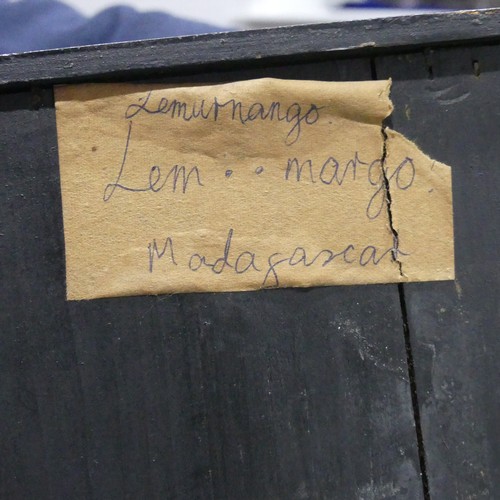 Lemurnango.
Lem · · margo.
Madagascar